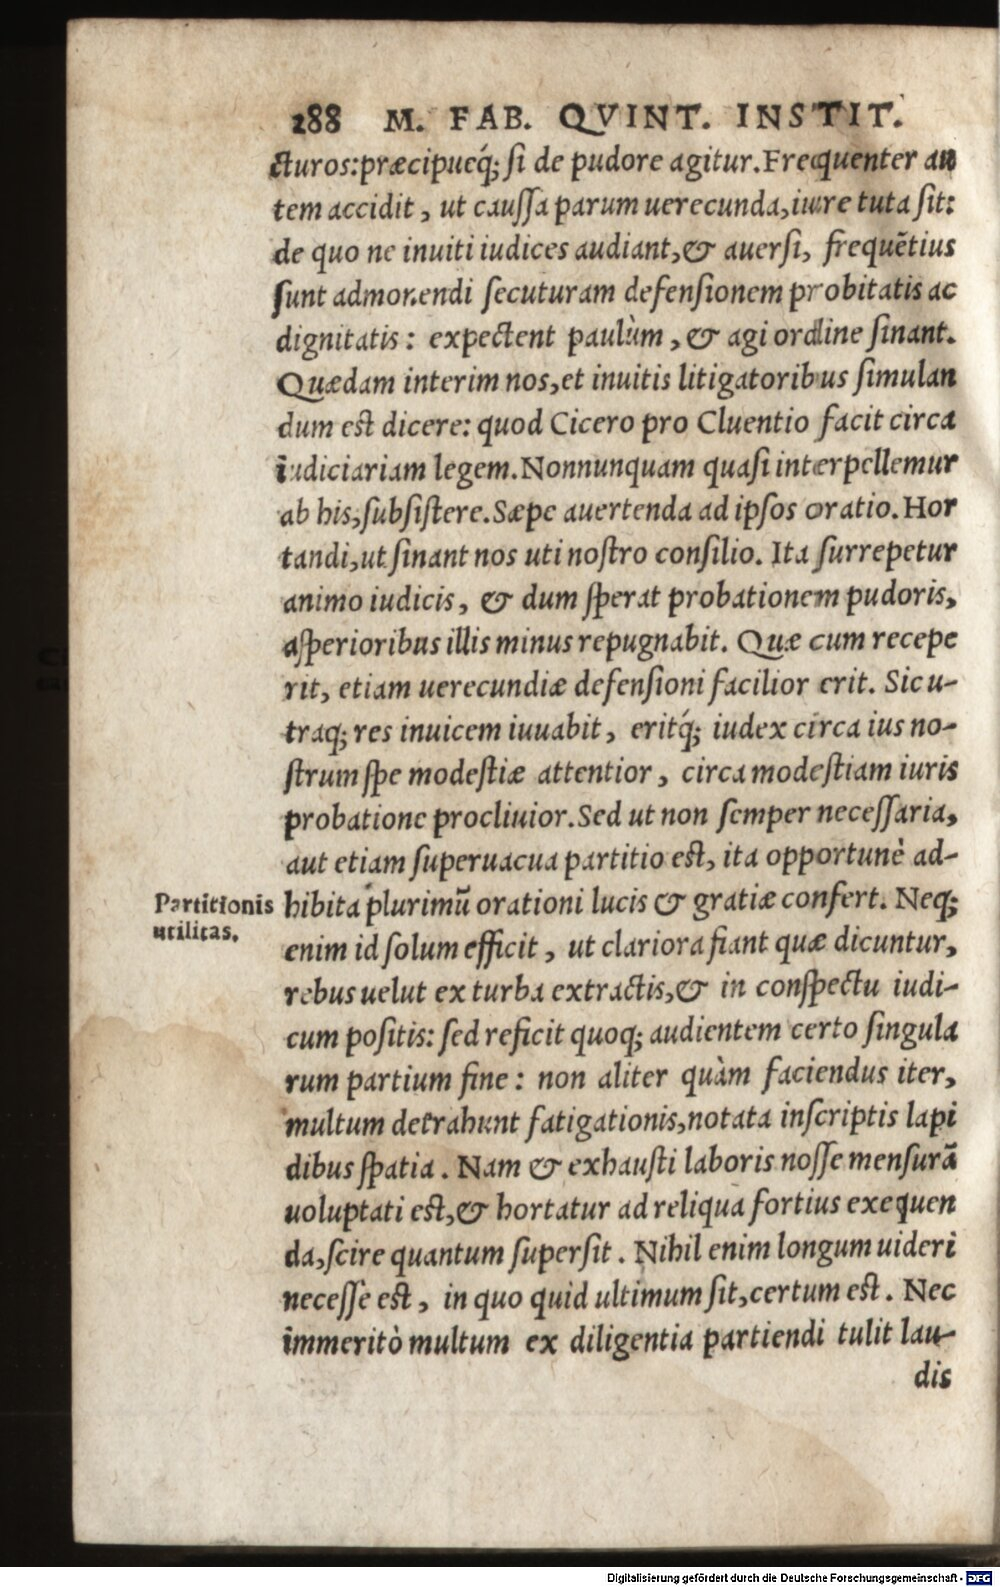 288 M. FAB. QVINT. INSTIT.
cturos:præcipueq́; si de pudore agitur. Frequenter au
tem accidit, ut caussa parum uerecunda, iure tuta sit:
de quo ne inuiti iudices audiant, & auersi, frequẽtius
sunt admonendi secuturam defensionem probitatis ac
dignitatis: expectent paulùm, & agi ordine sinant.
Quædam interim nos, et inuitis litigatoribus simulan
dum est dicere: quod Cicero pro Cluentio facit circa
iudiciariam legem. Nonnunquam quasi interpellemur
ab his, subsistere. Sæpe auertenda ad ipsos oratio. Hor
tandi, ut sinant nos uti nostro consilio. Ita surrepetur
animo iudicis, & dum sperat probationem pudoris,
asperioribus illis minus repugnabit. Quæ cum recepe
rit, etiam uerecundiæ defensioni facilior erit. Sic u-
traq; res inuicem iuuabit, eritq́; iudex circa ius no-
strum spe modestiæ attentior, circa modestiam iuris
probatione procliuior. Sed ut non semper necessaria,
aut etiam superuacua partitio est, ita opportunè ad-
Partitionis
utilitas.
hibita plurimũ orationi lucis & gratiæ confert. Neq;
enim id solum efficit, ut clariora fiant quæ dicuntur,
rebus uelut ex turba extractis, & in conspectu iudi-
cum positis: sed reficit quoq; audientem certo singula
rum partium fine: non aliter quàm faciendus iter,
multum detrahunt fatigationis, notata inscriptis lapi
dibus spatia. Nam & exhausti laboris nosse mensurã
uoluptati est, & hortatur ad reliqua fortius exequen
da, scire quantum supersit. Nihil enim longum uideri
necesse est, in quo quid ultimum sit, certum est. Nec
immeritò multum ex diligentia partiendi tulit lau-
dis
Digitalisierung gefördert durch die Deutsche Forschungsgemeinschaft - DFG